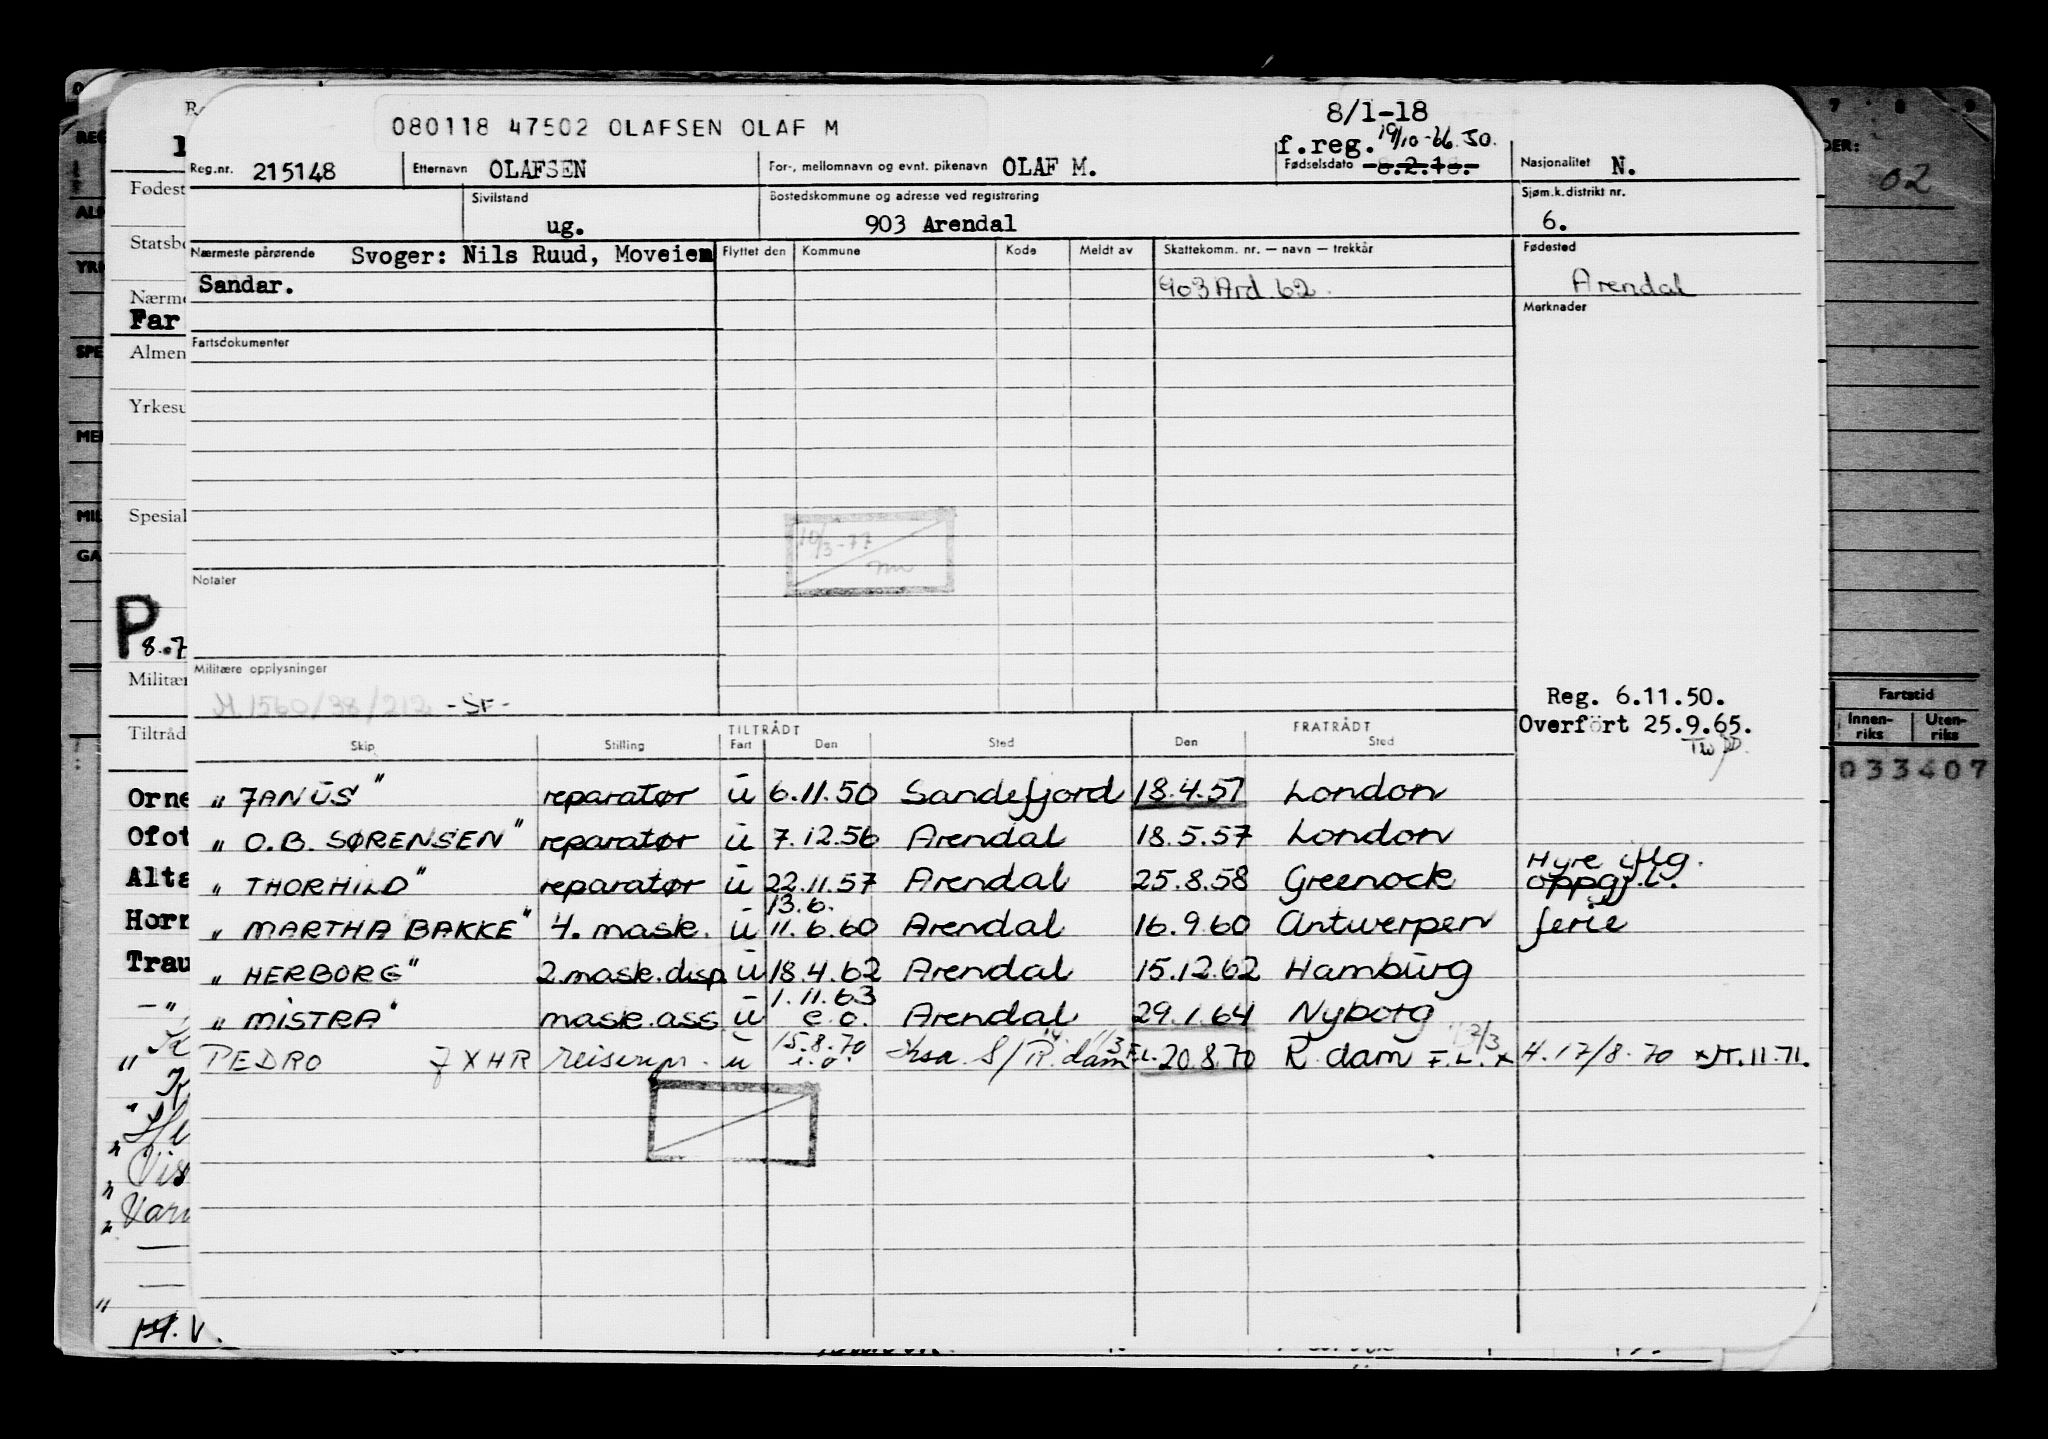 8/1-18
080118 47502 OLAFSEN OLAF M
f.reg. 19/10-66 JO.
Reg.nr. 215148 Etternavn OLAFSEN For-, mellomnavn og evnt. pikenavn OLAF M. Fødselsdato 8.2.18. Nasjonalitet N.
Sivilstand ug. Bostedskommune og adresse ved registrering 903 Arendal Sjøm.k.distrikt nr. 6.
Nærmeste pårørende Svoger: Nils Ruud, Moveien Flyttet den Kommune Kode Meldt av Skattekomm. nr. — navn — trekkår Fødested
Sandar. 903 Ard 62. Arendal
Merknader
Fartsdokumenter
10/3-77
Notater
Militære opplysninger
M.1560/38/212 -SF-
Reg. 6.11.50.
Overført 25.9.65.
TILTRÅDT FRATRÅDT
Skip Stilling Fart Den Sted Den Sted
"JANUS" reparatør u 6.11.50 Sandefjord 18.4.51 London
"O.B. SØRENSEN" reparatør u 7.12.56 Arendal 18.5.57 London
"THORHILD" reparatør u 22.11.57 Arendal 25.8.58 Greenock Hyre iflg. oppgj.l.
13.6.
"MARTHA BAKKE" 4. mask. u 11.6.60 Arendal 16.9.60 Antwerpen ferie
"HERBORG" 2.mask.disp u 18.4.62 Arendal 15.12.62 Hamburg
1.11.63
"MISTRA" mask.ass u e.o. Arendal 29.1.64 Nyborg
15.8.70
PEDRO JXHR reiserep. u e.o. S/R.dam F.L. 20.8.70 R.dam F.L. x 4.17/8.70 x JT.11.71.
Fødest
Statsbo
Nærme
Far
Almen
Yrkesu
Spesial
P
8.7
Militær
Tiltråd
Orne
Ofot
Alta
Horn
Trau
02
Fartstid
Innen-
riks
Uten-
riks
033407